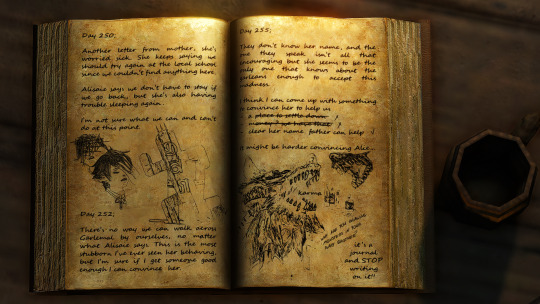 Day 250;
Another letter from mother, she's
worried sick. She keeps saying we
should try again at the local school
since we couldn't find anything here.
Alisaie says we don't have to stay if
we go back, but she's also having
trouble sleeping again.
I'm not sure what we can and can't
do at this point.
Day 252;
There's no way we can walk across
Garlemal by ourselves, no matter
what Alisaie says. This is the most
stubborn I've ever seen her behaving,
but I'm sure if I get someone good
enough I can convince her.
Day 255;
They don't know her name, and the
one they speak isn't all that
encouraging but she seems to be the
only one that knows about the
enough to accept this
madness.
I think I can come up with something
to convince her to help us.
a place to settle down
clear her name. father can help :)
It might be harder convincing
karma
it's a
journal
and STOP
writing
on it!!